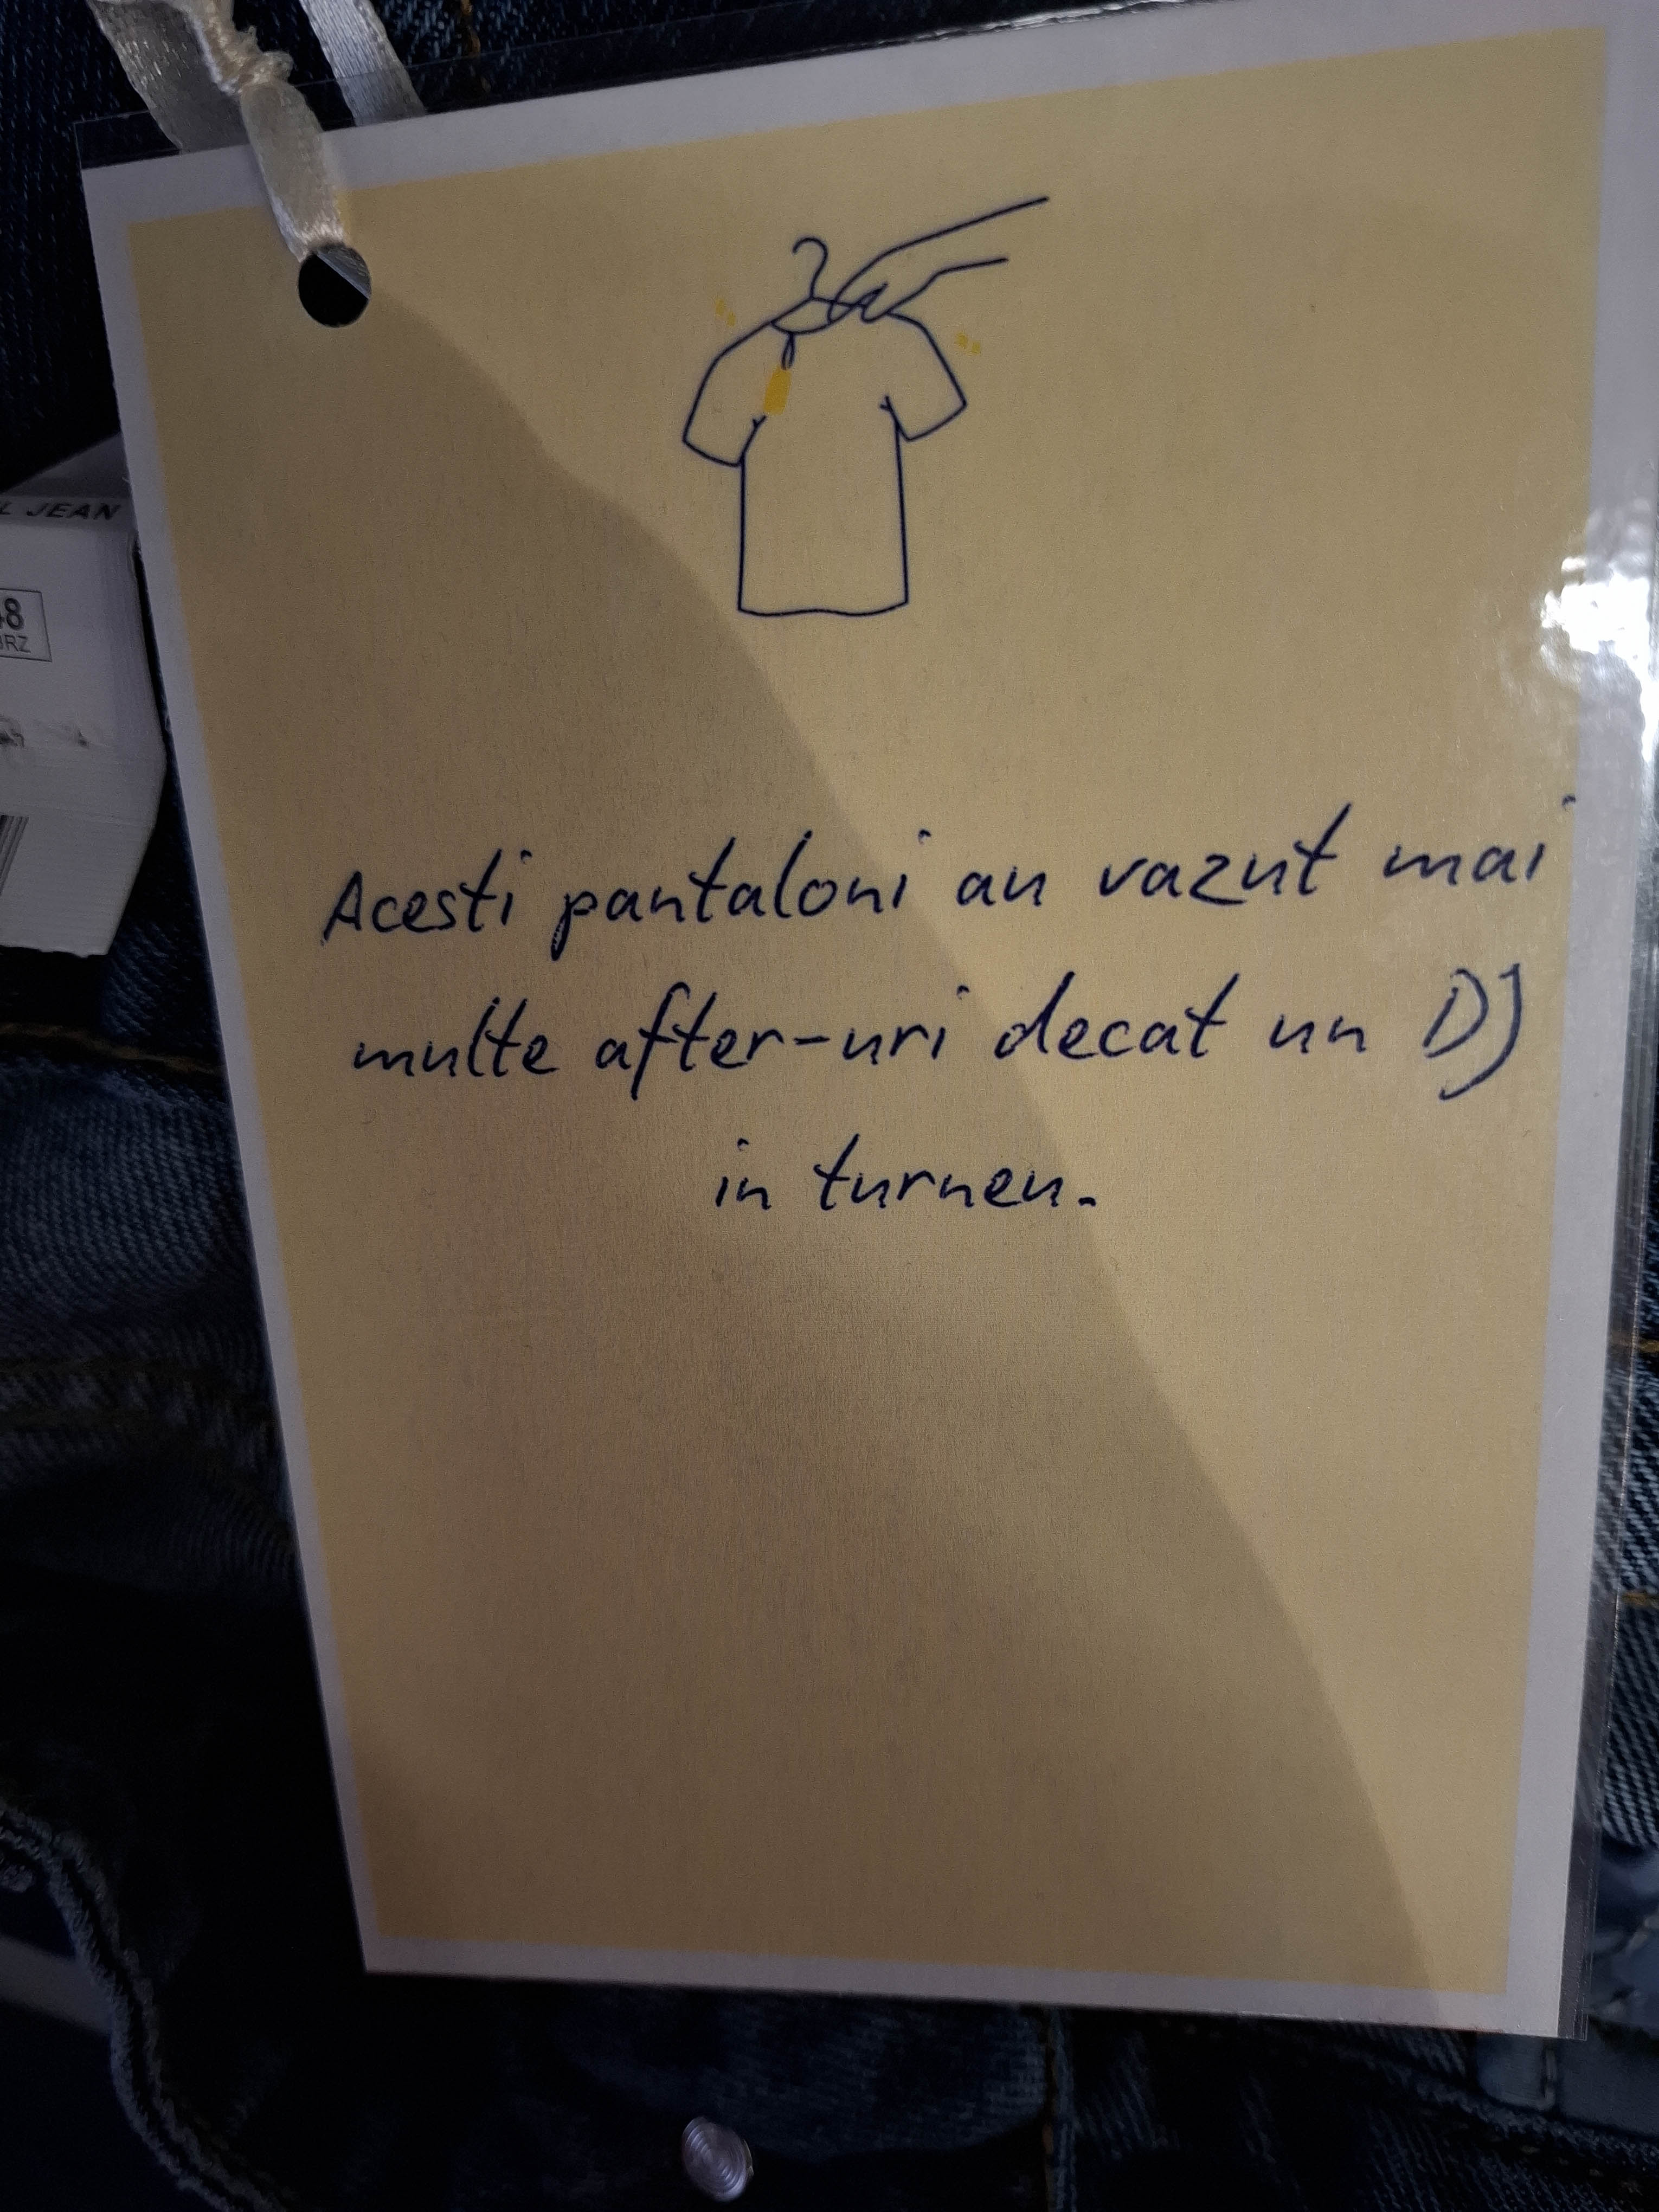 L JEAN
Acesti pantaloni au vazut mai
multe after-uri decat un DJ
in turneu.